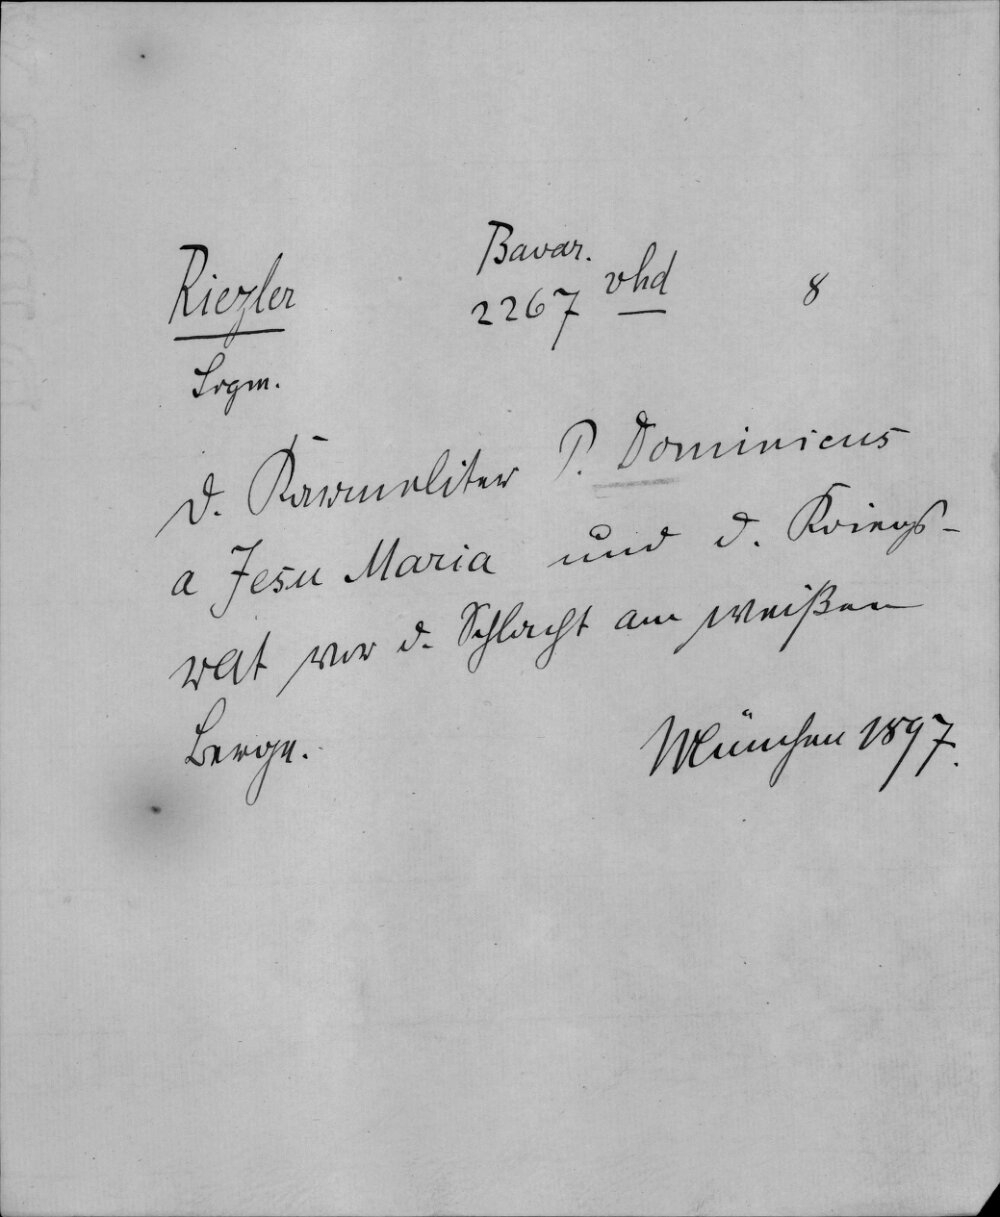 Riezler
Bavar.
2267 vhd
8
Srgm.
D. Karmeliter P. Dominicus
a Jesu Maria und d. Kriegs-
rat vor d. Schlacht am weißen
Berge.
München 1897.